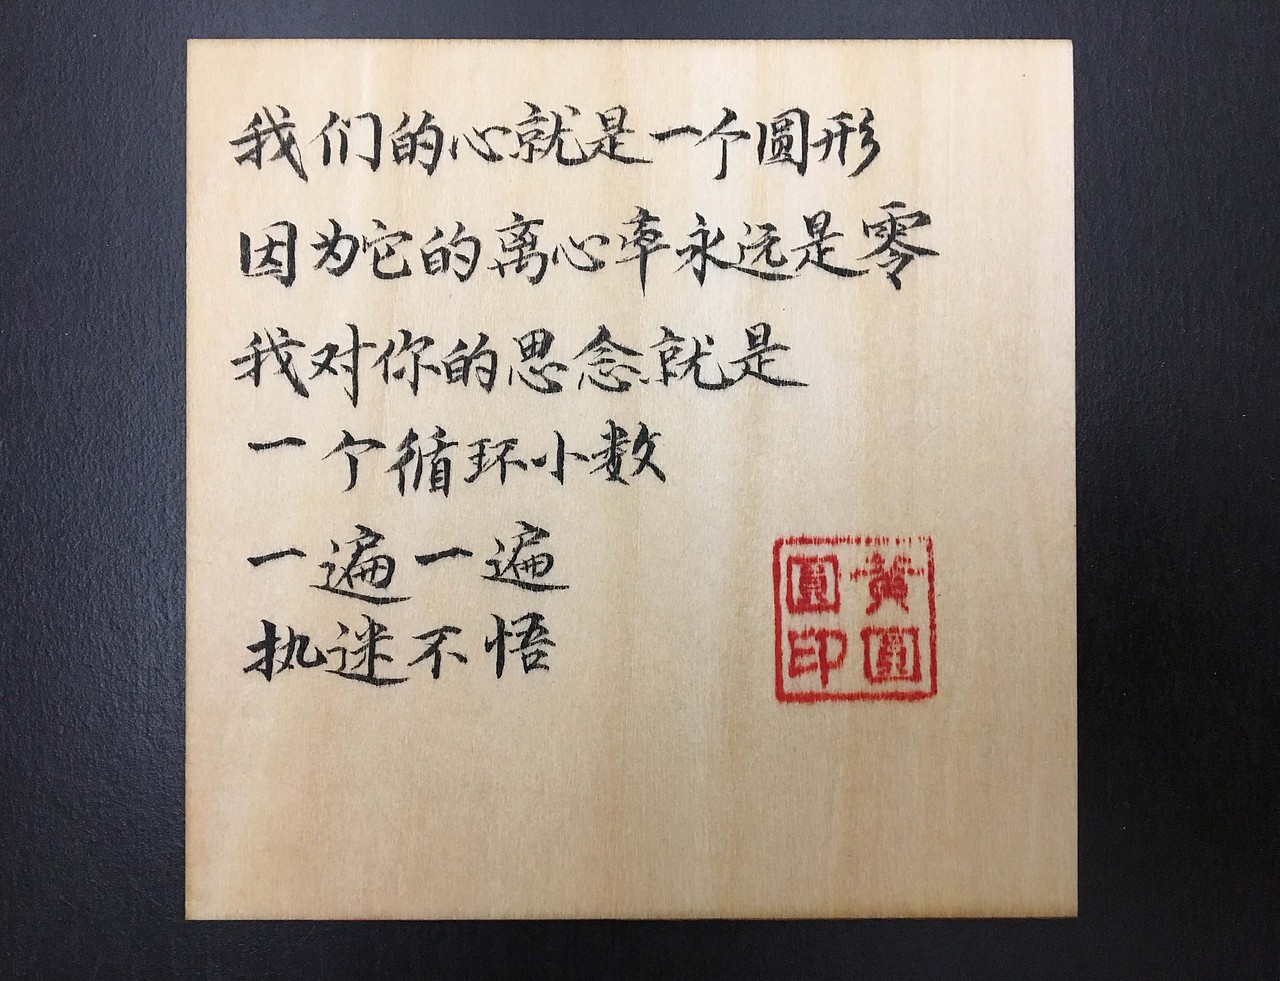 我们的心就是一个圆形
因为它的离心率永远是零
我对你的思念就是
一个循环小数
一遍一遍
执迷不悟
黄圓
圓印